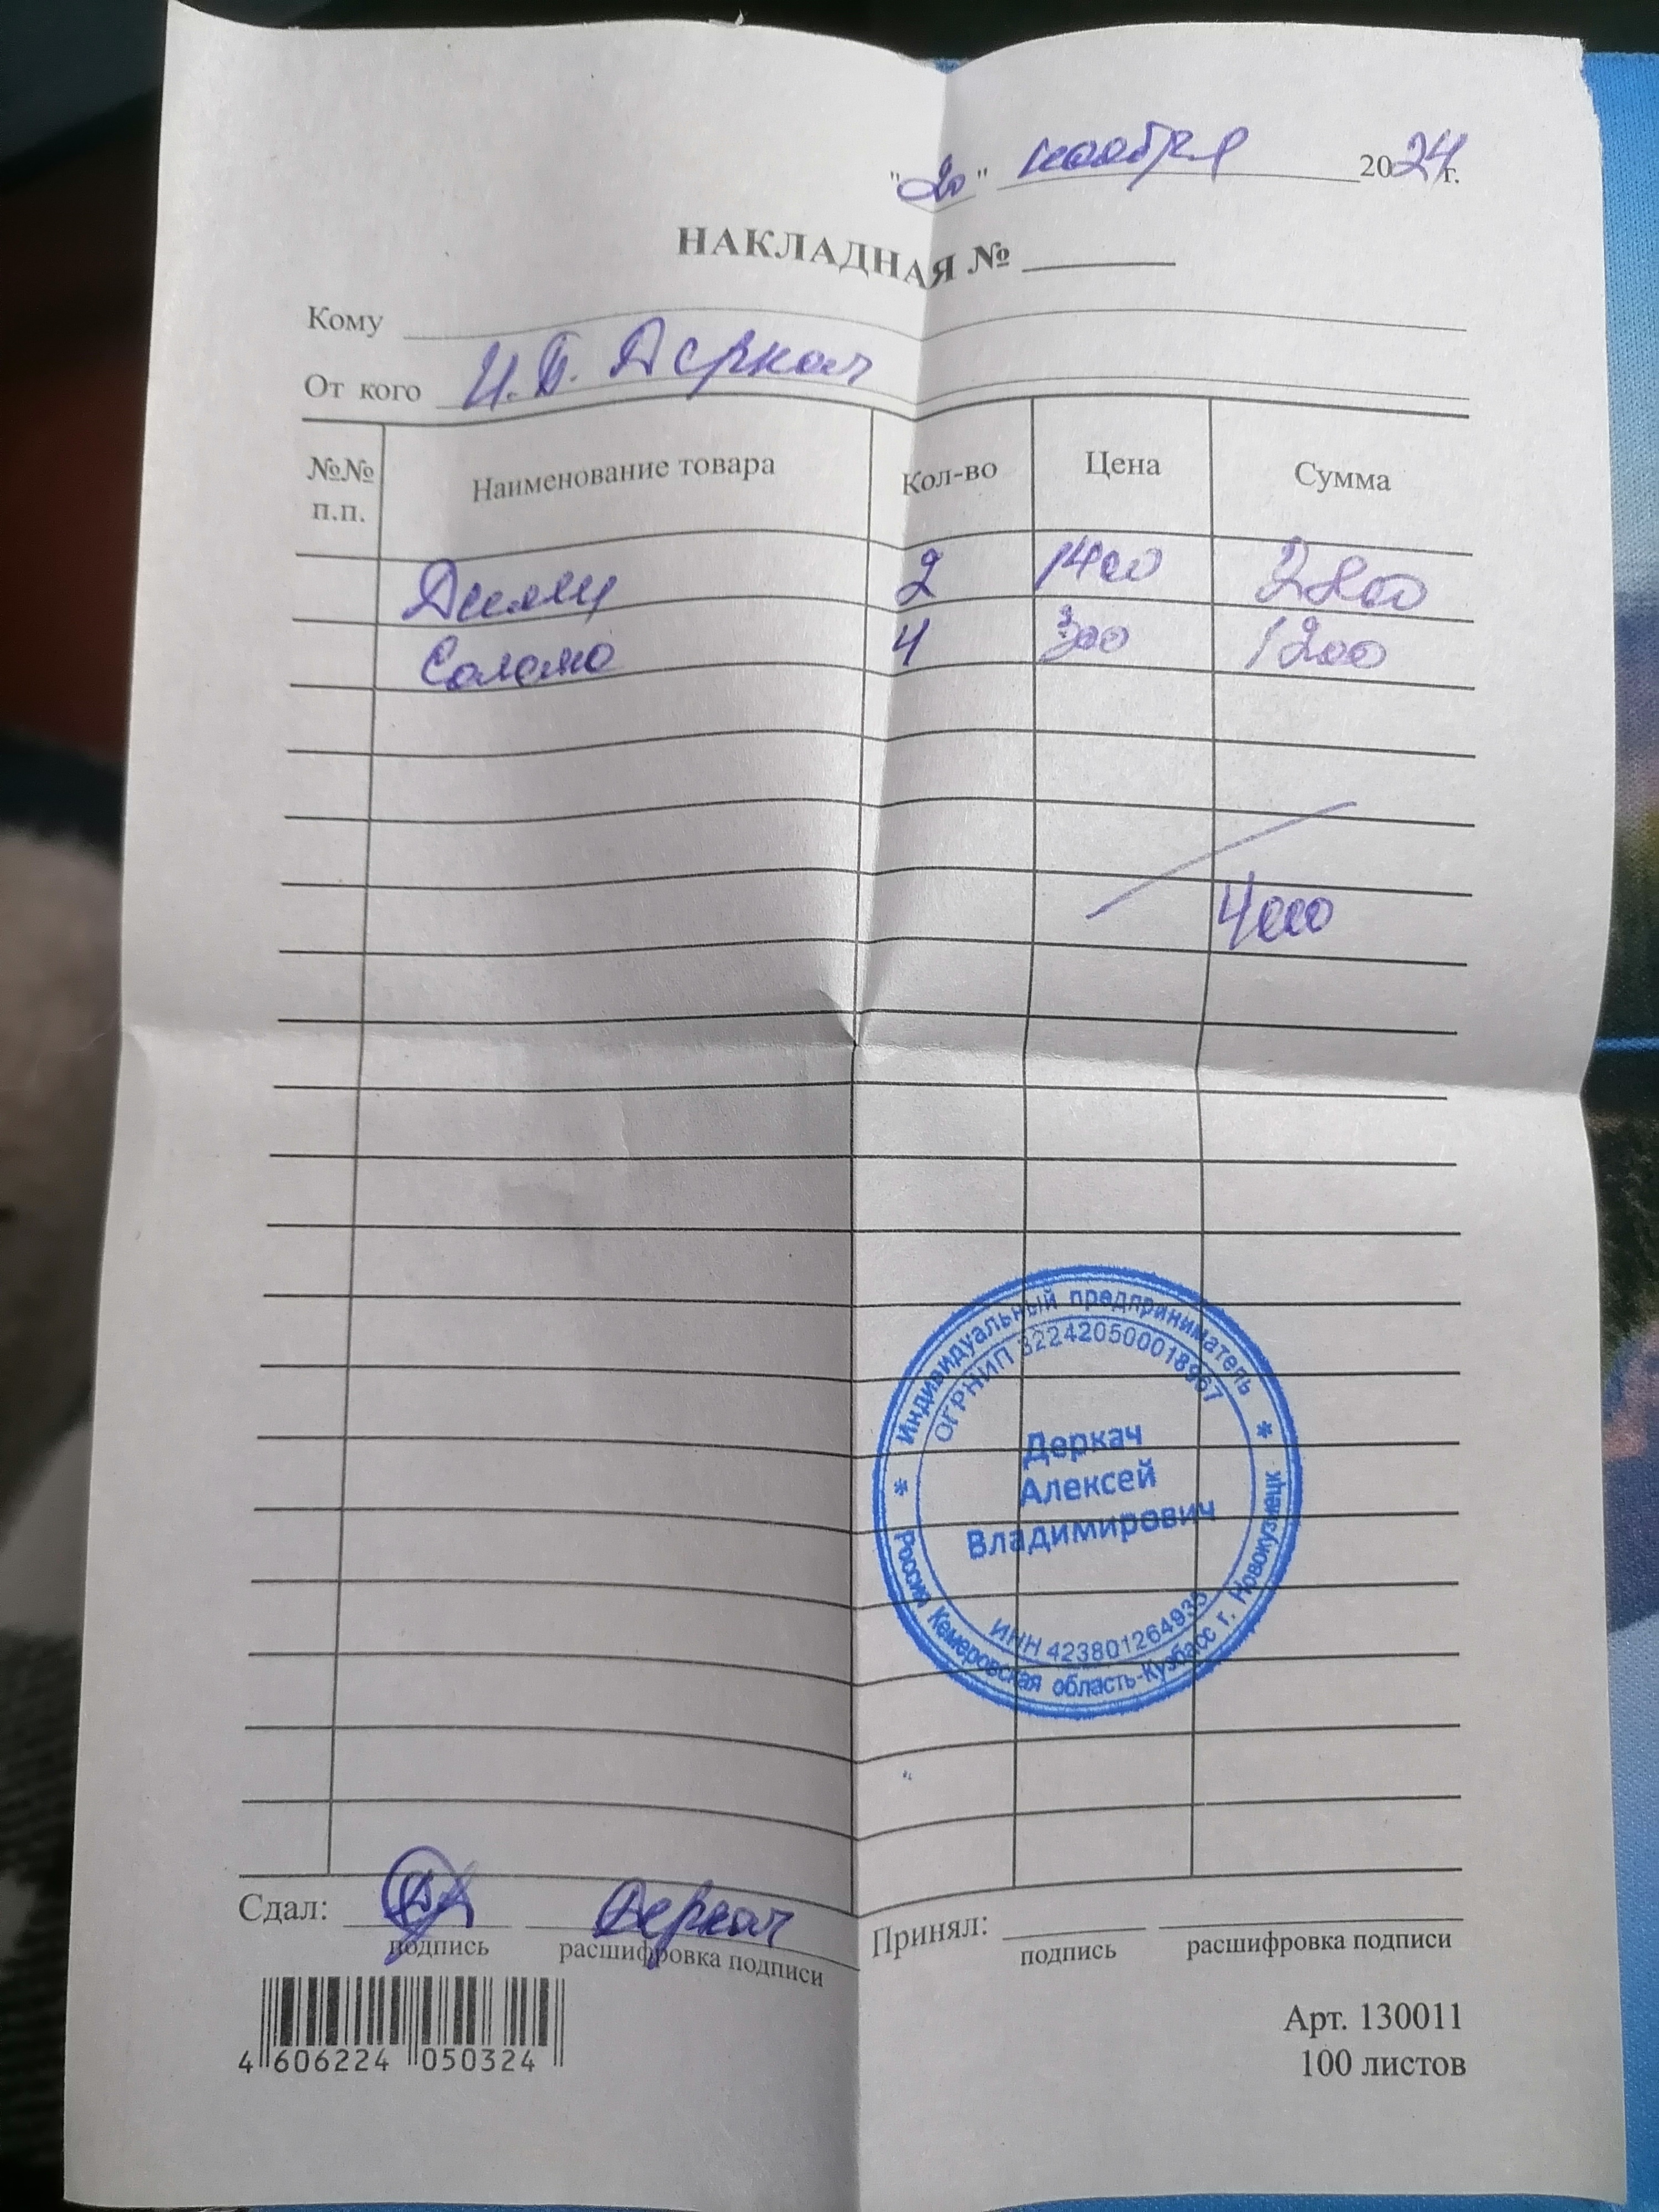 "20" ноября 2024 г.
НАКЛАДНАЯ №
Кому
От кого И.П. Деркач
№№ п.п. Наименование товара Кол-во Цена Сумма
2 1400 2800
Солома 4 300 1200
4000
Индивидуальный предприниматель
ОГРНИП 322420500018967
Деркач
Алексей
Владимирович
ИНН 423801264935
Россия Кемеровская область-Кузбасс г. Новокузнецк
Сдал: Деркач Принял:
подпись расшифровка подписи подпись расшифровка подписи
4 606224 050324
Арт. 130011
100 листов